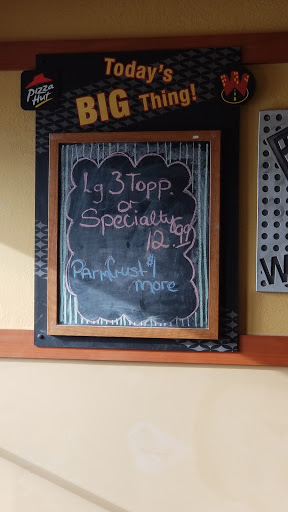 Pizza
Hut
Today's
BIG Thing!
Lg 3 Topp.
or
Specialty
12.99
Parm Crust $1
more
W